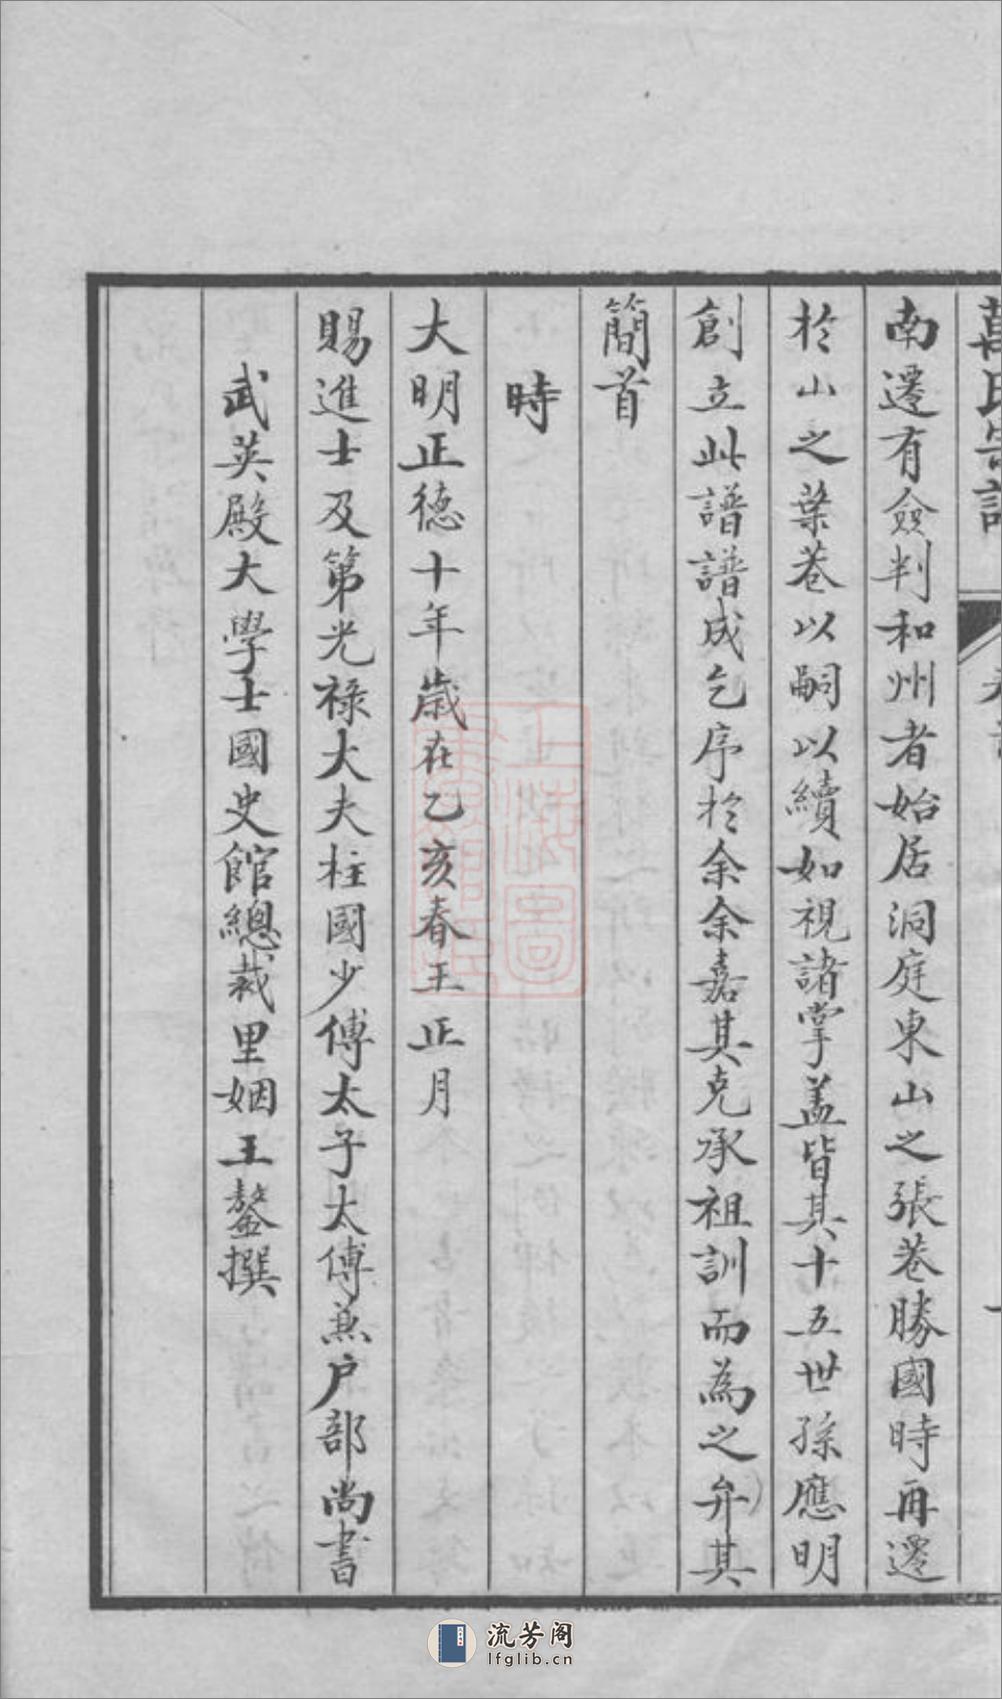 南遷有僉判和州者始居洞庭東山之張巷勝國時再遷
於山之葉巷以嗣以續如視諸掌蓋皆其十五世孫應明
創立此譜譜成乞序於余余嘉其克承祖訓而為之弁其
簡首
時
大明正德十年歲在乙亥春王正月
賜進士及第光祿大夫柱國少傅太子太傅兼户部尚書
武英殿大學士國史館總裁里姻王鏊撰
上海圖書館藏
流芳阁
lfglib.cn